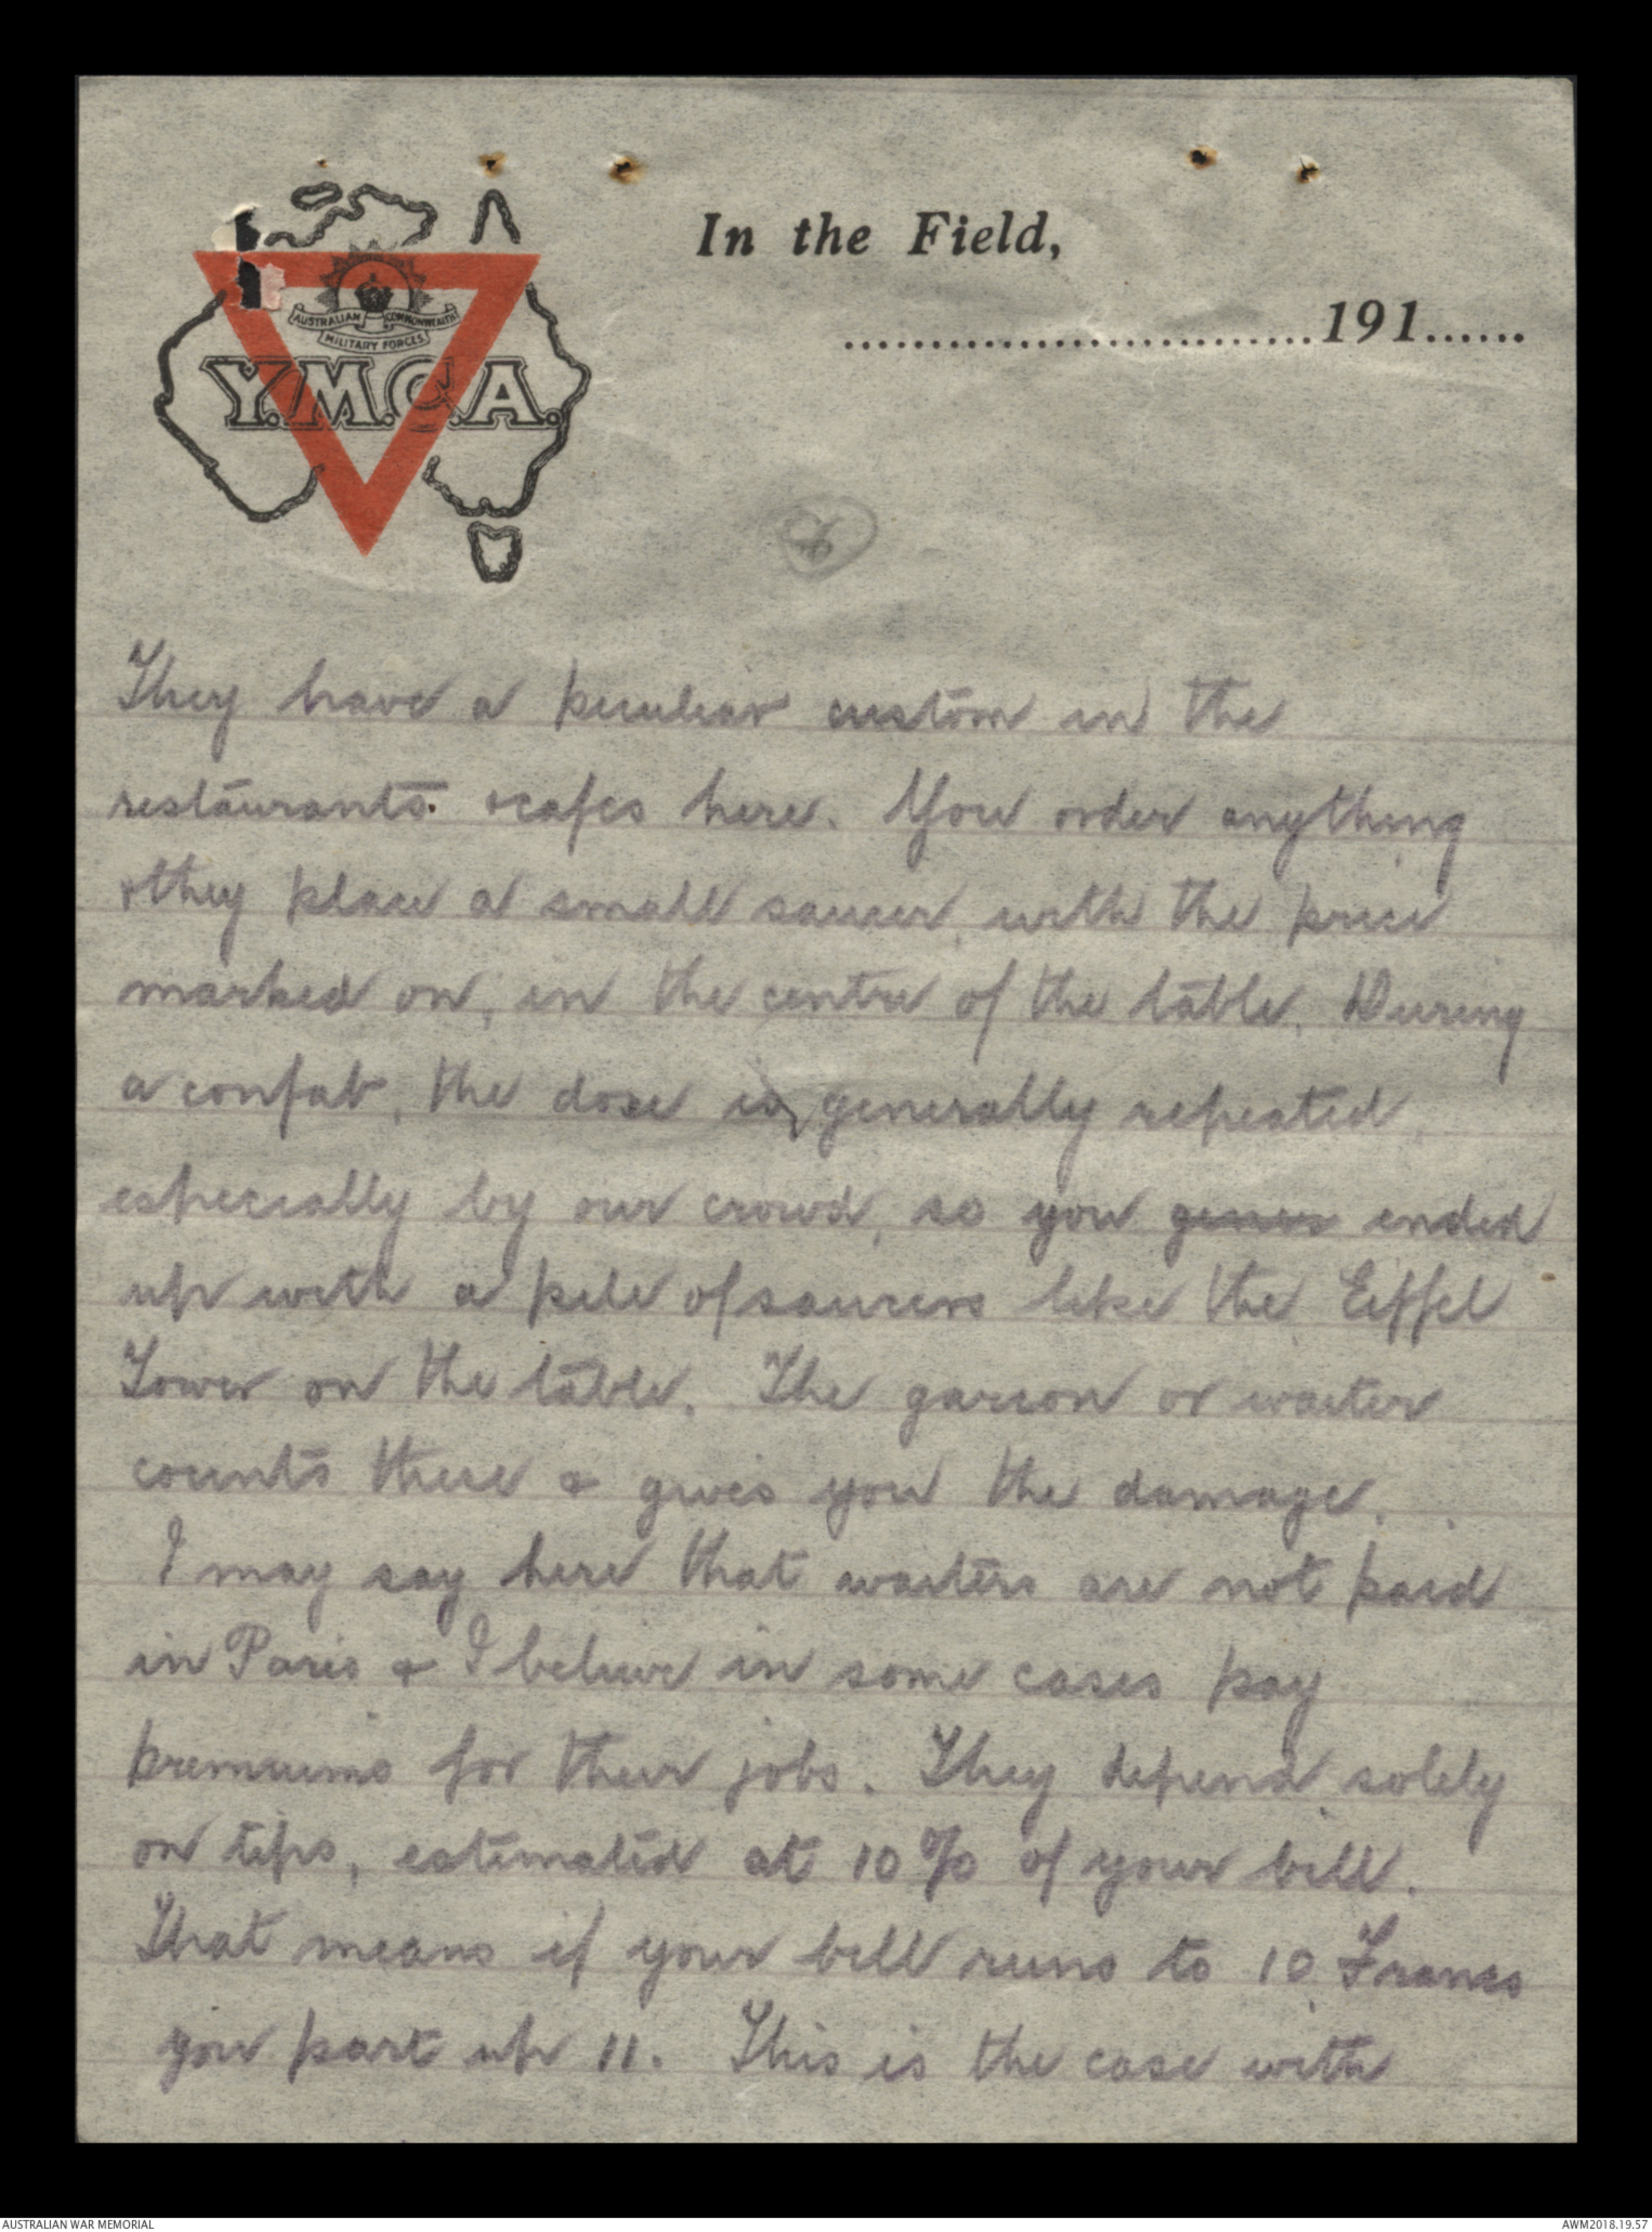 In the Field,
...........................191......
AUSTRALIAN COMMONWEALTH
MILITARY FORCES
Y.M.C.A.
They have a peculiar custom in the
restaurants. & cafes here. You order anything
& they place a small saucer, with the price
marked on, in the centre of the table. During
a confab, the dose is generally repeated,
especially by our crowd, so you gener ended
up with a pile of saucers like the Eiffel
Tower on the table. The garcon or waiter
counts these & gives you the damage.
I may say here that waiters are not paid
in Paris & I believe in some cases pay
premiums for their jobs. They depend solely
on tips, estimated at 10% of your bill.
That means if your bill runs to 10 Francs
you part up 11. This is the case with
AUSTRALIAN WAR MEMORIAL
AWM2018.19.57